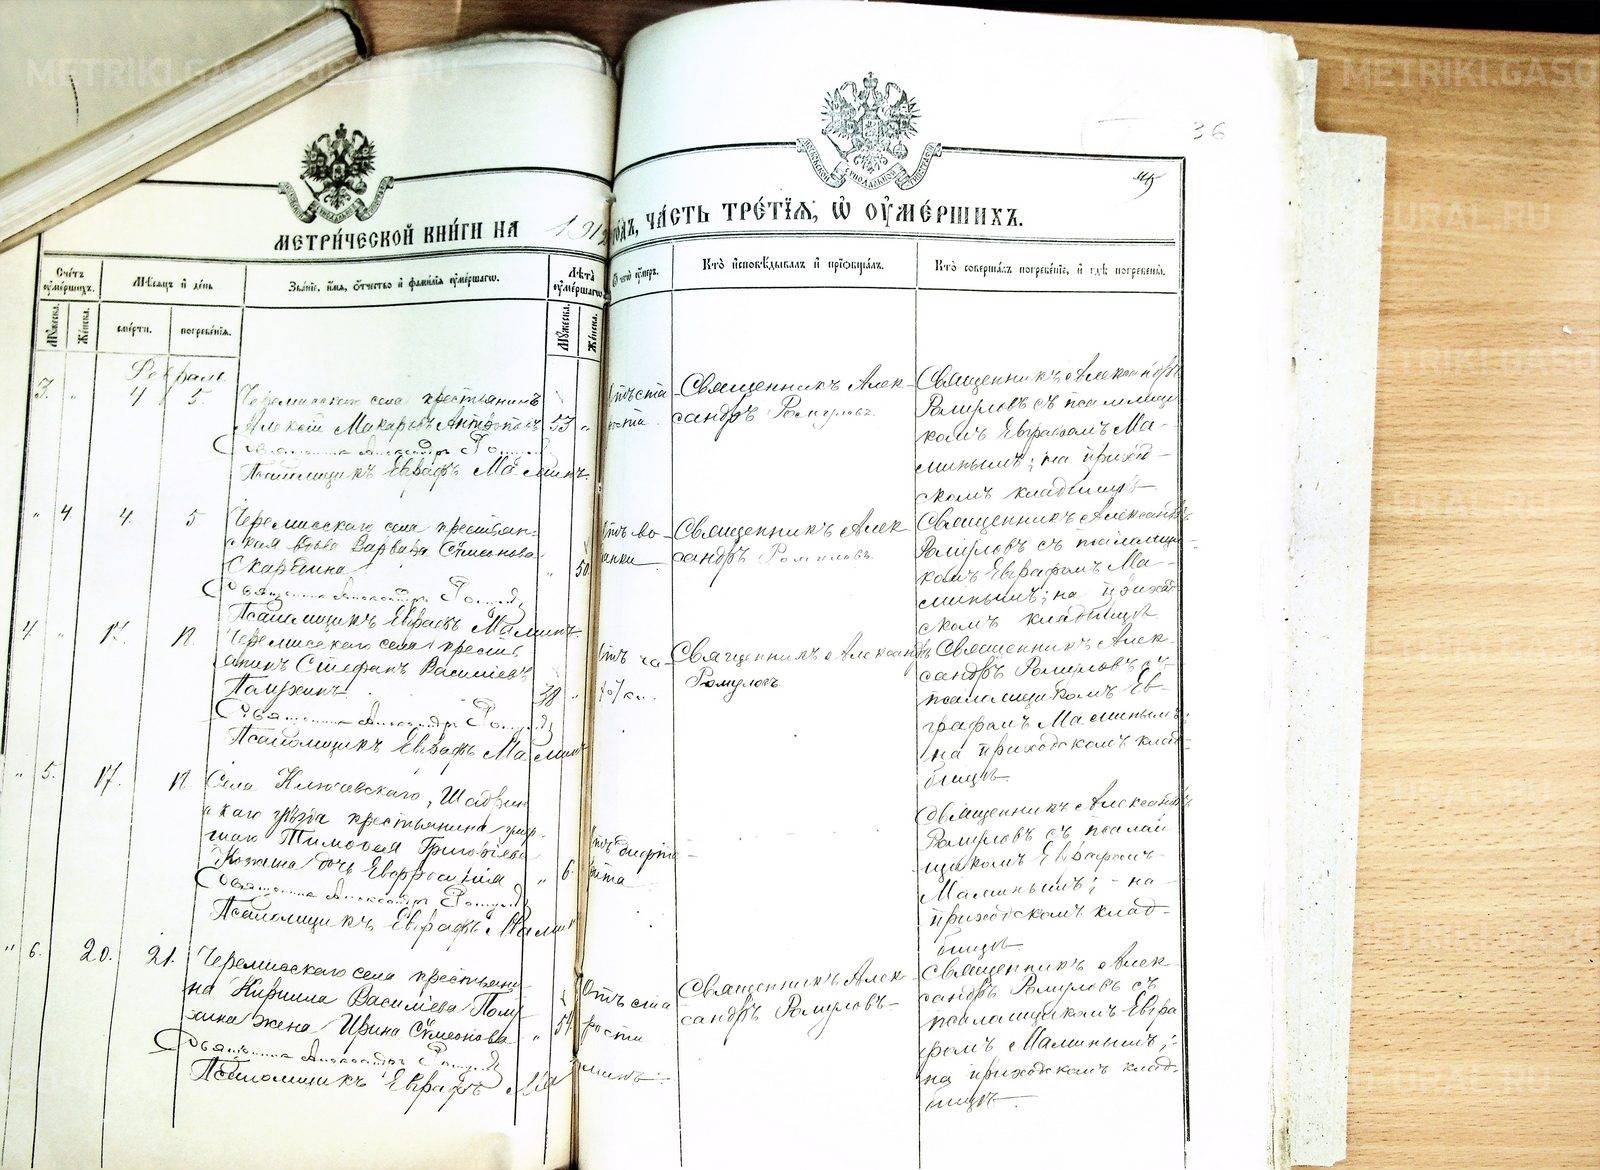 METRIKI.GASO-URAL.RU
METRIKI.GASO
36
СѴНОДАЛЬНОЙ
МЕТРИ́ЧЕСКОЙ КНИ́ГИ НА 1912
ГОДЪ, ЧА́СТЬ ТРЕ́ТІѦ, Ѽ ОУ҆МЕ́РШИХЪ.
Сче́тъ оумершихъ.
Мѣсяцъ и день
Званіе, имя, отчество и фамилія оумершагѡ.
Лѣта оумершагѡ
Мꙋжеска.
Женска.
смерти.
погребенія.
Мꙋжеска.
Женска.
Ѿ чегѡ оумеръ.
Кто исповѣдывалъ и пріобщалъ.
Кто совершалъ погребеніе, и гдѣ погребены.
Февраль
3. " 4 5.
Черемисскаго села крестьянинъ
Алексій Макаровъ Антроповъ 53 "
Священникъ Александръ Ромулов
Псаломщикъ Евграфъ Маминъ
Отъ ста
рости
Священникъ Алек-
сандръ Ромуловъ.
Священникъ Александръ
Ромуловъ съ псаломщи
комъ Евграфомъ Ма-
минымъ; на приход-
скомъ кладбищѣ
" 4. 4. 5
Черемисскаго села крестьян-
ская вдова Варвара Сѵмеонова
" 50
Священникъ Александръ Ромулов
Псаломщикъ Евграфъ Маминъ
Священникъ Алек
сандръ Ромуловъ.
Священникъ Александръ
Ромуловъ съ псаломщи-
комъ Евграфомъ Ма-
минымъ; на приход-
скомъ кладбищѣ
4. " 17.
Черемисскаго села кресть
янинъ Стефанъ Васильевъ
38 "
Священникъ Александръ Ромулов
Псаломщикъ Евграфъ Маминъ
Отъ ча-
хотки.
Священникъ Александръ
Ромуловъ
Священникъ Алек-
сандръ Ромуловъ съ
псаломщикомъ Ев-
графомъ Маминымъ;
на приходскомъ клад-
бищѣ
" 5. 17.
Села Ключевскаго, Шадрин
скаго уѣзда крестьянина умер-
шаго Тимофея Григорьева
дочь Евфросинія " 6.
Священникъ Александръ Ромулов
Псаломщикъ Евграфъ Мамин
Отъ дифте-
рита
Священникъ Александръ
Ромуловъ съ псалом
щикомъ Евграфомъ
Маминымъ; - на
приходскомъ клад-
бищѣ
" 6. 20. 21.
Черемисскаго села крестьяни-
на Кирилла Васильева
жена Ирина Сѵмеонова "
Священникъ Александръ Ромулов
Псаломщикъ Евграфъ Ма
Отъ ста
рости
Священникъ Алек
сандръ Ромуловъ-
Священникъ Алек
сандръ Ромуловъ съ
псаломщикомъ Евгра
фомъ Маминымъ;
на приходскомъ клад-
бищѣ.